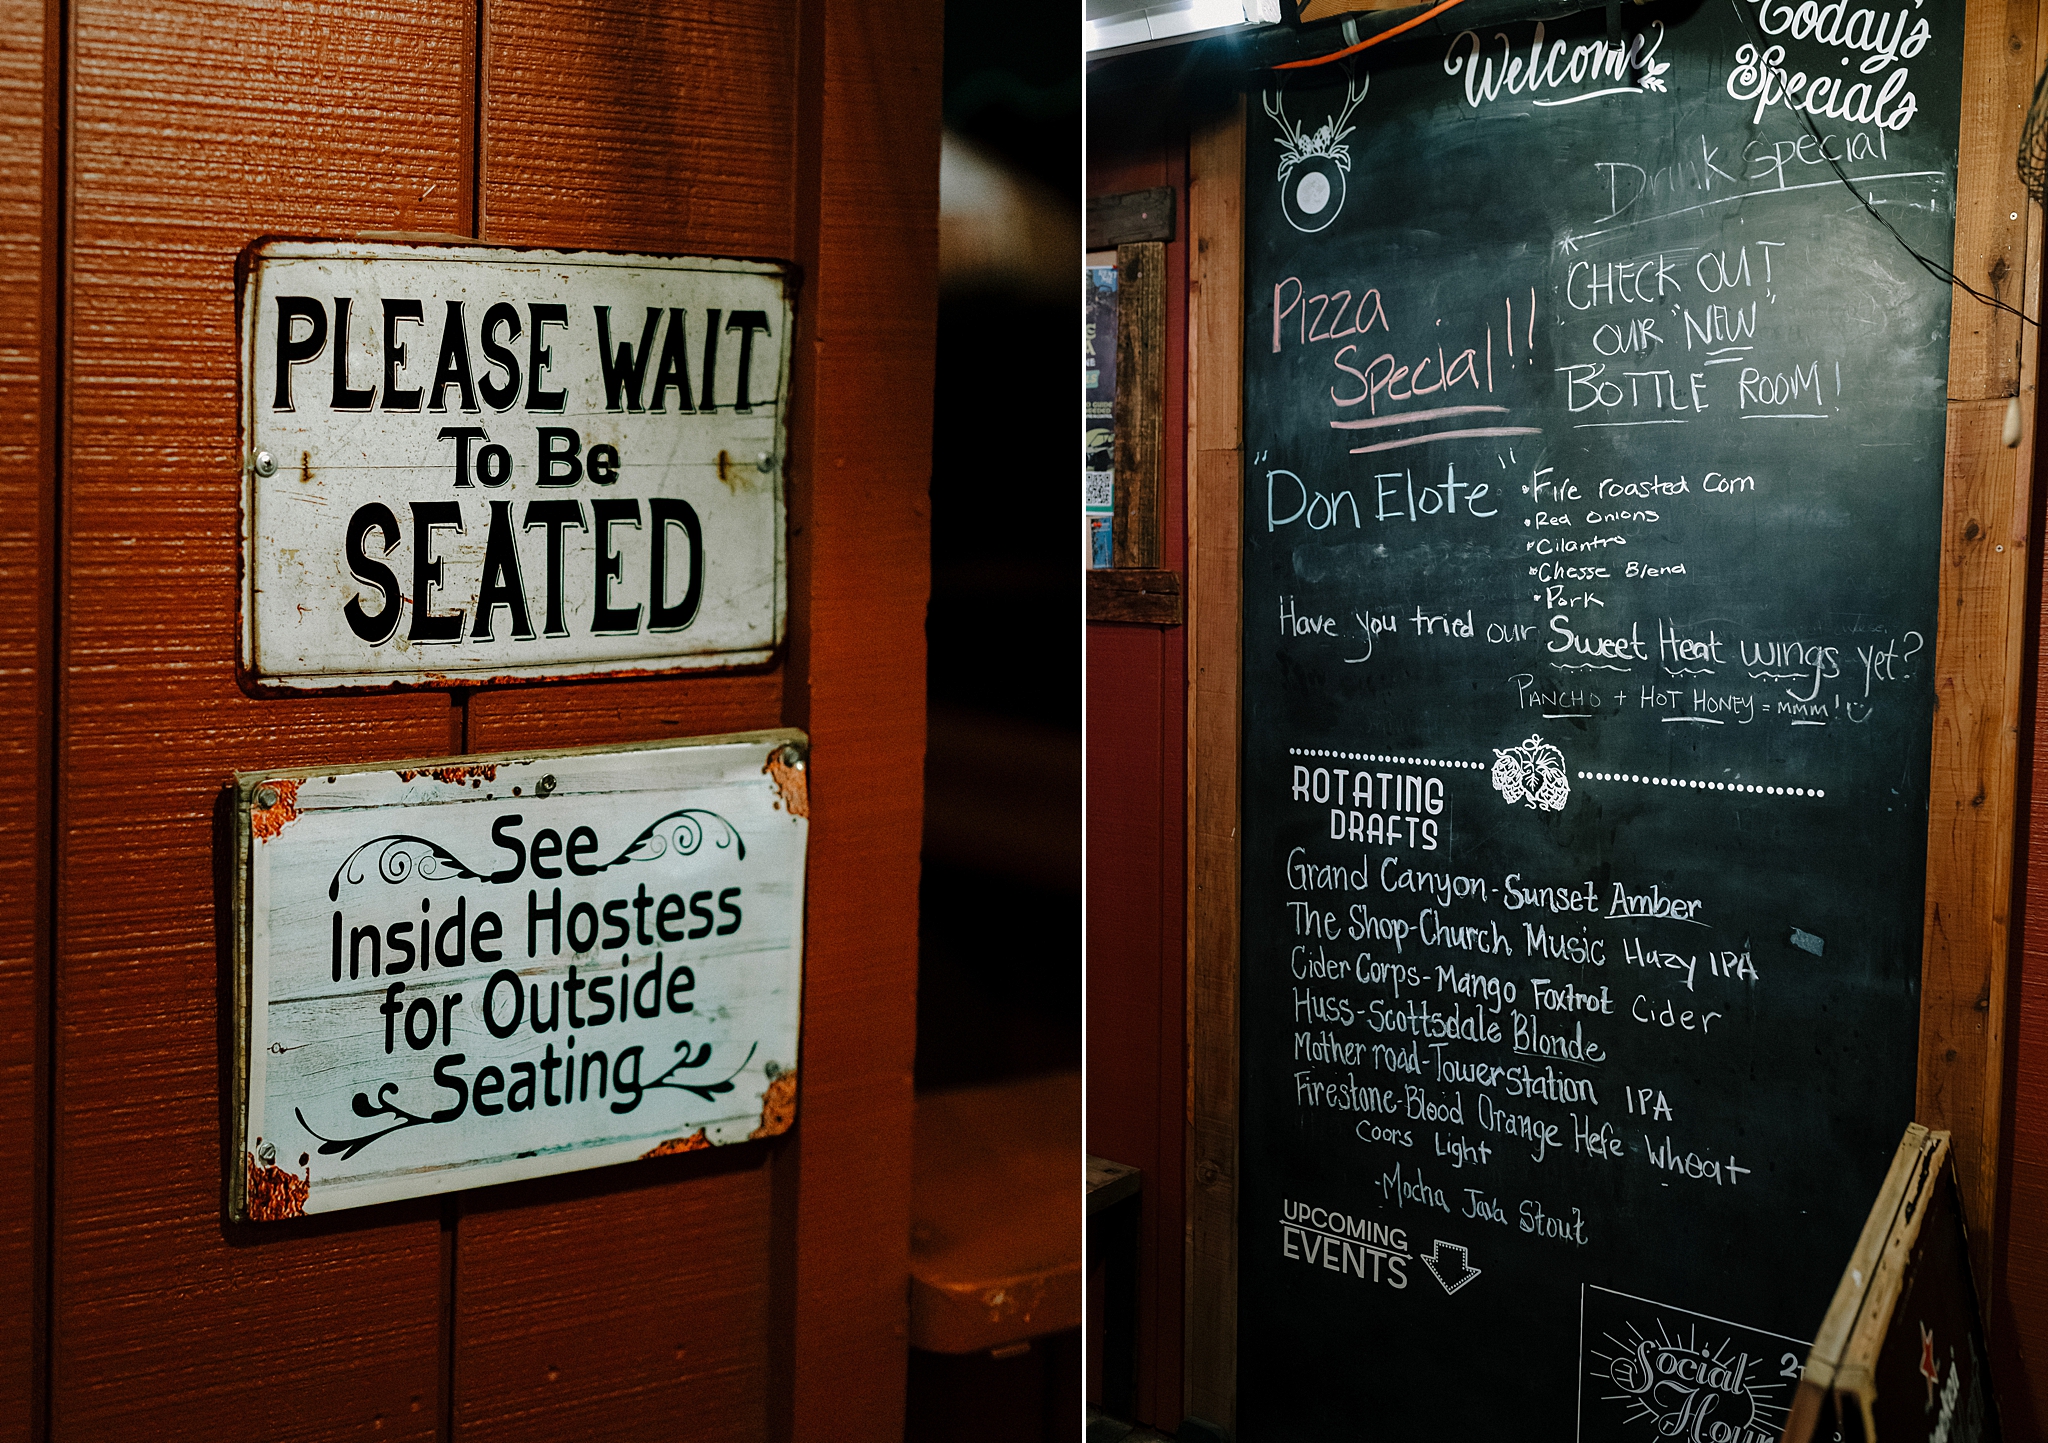 PLEASE WAIT
To Be
SEATED
See
Inside Hostess
for Outside
Seating
Welcome
Today's
Specials
Drink Special
Pizza
Special!!
* CHECK OUT
OUR "NEW"
BOTTLE ROOM!
"Don Elote"
• Fire roasted Corn
• Red Onions
• Cilantro
• Chesse Blend
• Pork
Have you tried our Sweet Heat wings yet?
PANCHO + HOT HONEY = MMM!
ROTATING
DRAFTS
Grand Canyon-Sunset Amber
The Shop-Church Music Hazy IPA
Cider Corps-Mango Foxtrot Cider
Huss-Scottsdale Blonde
Mother road-Tower Station IPA
Firestone-Blood Orange Hefe-Wheat
Coors Light
-Mocha Java Stout
UPCOMING
EVENTS
Social
Hour